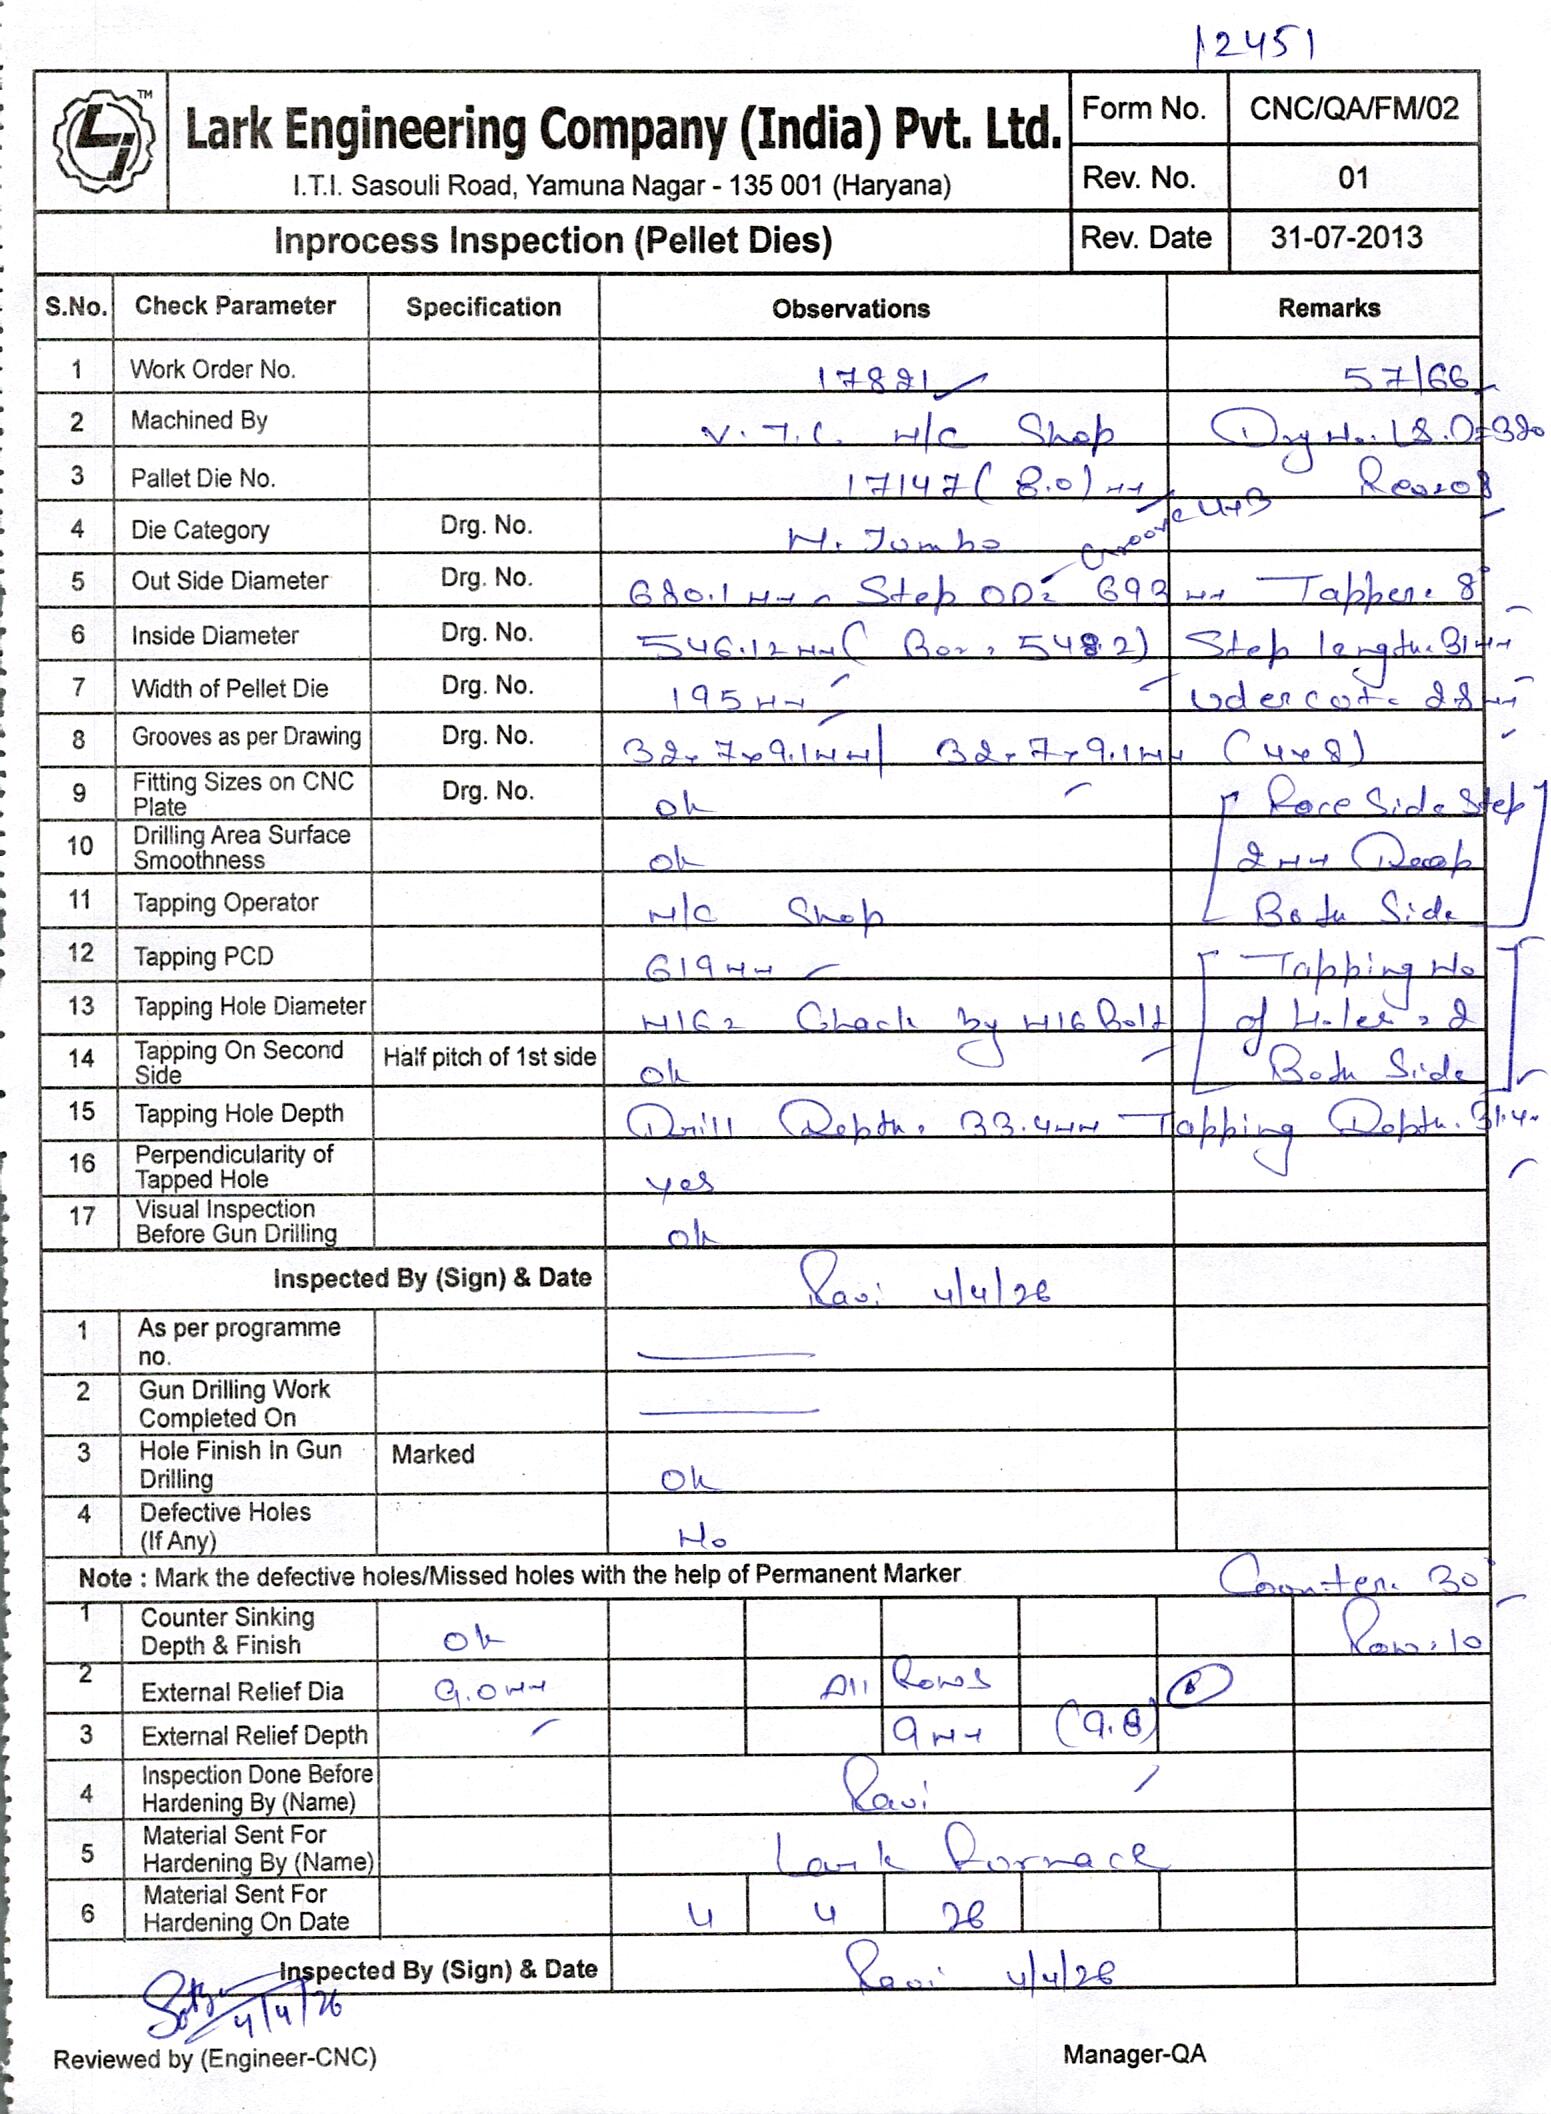 12451
TM
Lark Engineering Company (India) Pvt. Ltd.
I.T.I. Sasouli Road, Yamuna Nagar - 135 001 (Haryana)
Form No. CNC/QA/FM/02
Rev. No. 01
Inprocess Inspection (Pellet Dies) Rev. Date 31-07-2013
S.No. Check Parameter Specification Observations Remarks
1 Work Order No. 17821 57/66
2 Machined By V.T.C. M/C Shop Drg No.
3 Pallet Die No. 17147 (8.0) mm
4 Die Category Drg. No. M. Jumbo Groove 4+3
5 Out Side Diameter Drg. No. 680.1 mm Step OD= 693 mm Tapper. 8°
6 Inside Diameter Drg. No. 546.12 mm ( Bor. 548.2) Step length. 31 mm
7 Width of Pellet Die Drg. No. 195 mm Udercot. 28 mm
8 Grooves as per Drawing Drg. No. 32x7x9.1mm/ 32x7x9.1mm (4x8)
9 Fitting Sizes on CNC Plate Drg. No. ok [ Race Side Step
10 Drilling Area Surface Smoothness ok 2 mm Deep
11 Tapping Operator M/C Shop Both Side ]
12 Tapping PCD 619 mm [ Tapping No
13 Tapping Hole Diameter M16= Check by M16 Bolt of Holes = 2
14 Tapping On Second Side Half pitch of 1st side ok Both Side ]
15 Tapping Hole Depth Drill Depth. 33.4mm Tapping Depth. 31.4
16 Perpendicularity of Tapped Hole yes
17 Visual Inspection Before Gun Drilling ok
Inspected By (Sign) & Date Ravi 4/4/26
1 As per programme no.
2 Gun Drilling Work Completed On
3 Hole Finish In Gun Drilling Marked Ok
4 Defective Holes (If Any) No
Note : Mark the defective holes/Missed holes with the help of Permanent Marker Counter. 30°
1 Counter Sinking Depth & Finish ok Row. 10
2 External Relief Dia 9.0 mm All Rows
3 External Relief Depth 9 mm (9.8)
4 Inspection Done Before Hardening By (Name) Ravi
5 Material Sent For Hardening By (Name) Lark Fornace
6 Material Sent For Hardening On Date 4 4 26
Inspected By (Sign) & Date Ravi 4/4/26
4/4/26
Reviewed by (Engineer-CNC) Manager-QA